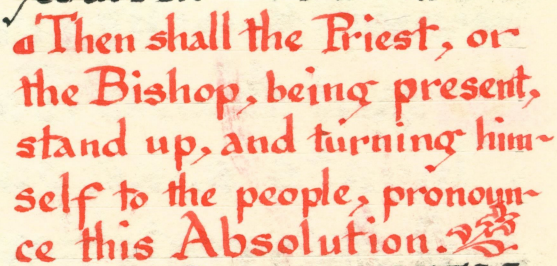 Then shall the Priest, or
the Bishop, being present,
stand up, and turning him-
self to the people, pronoun-
ce this Absolution.